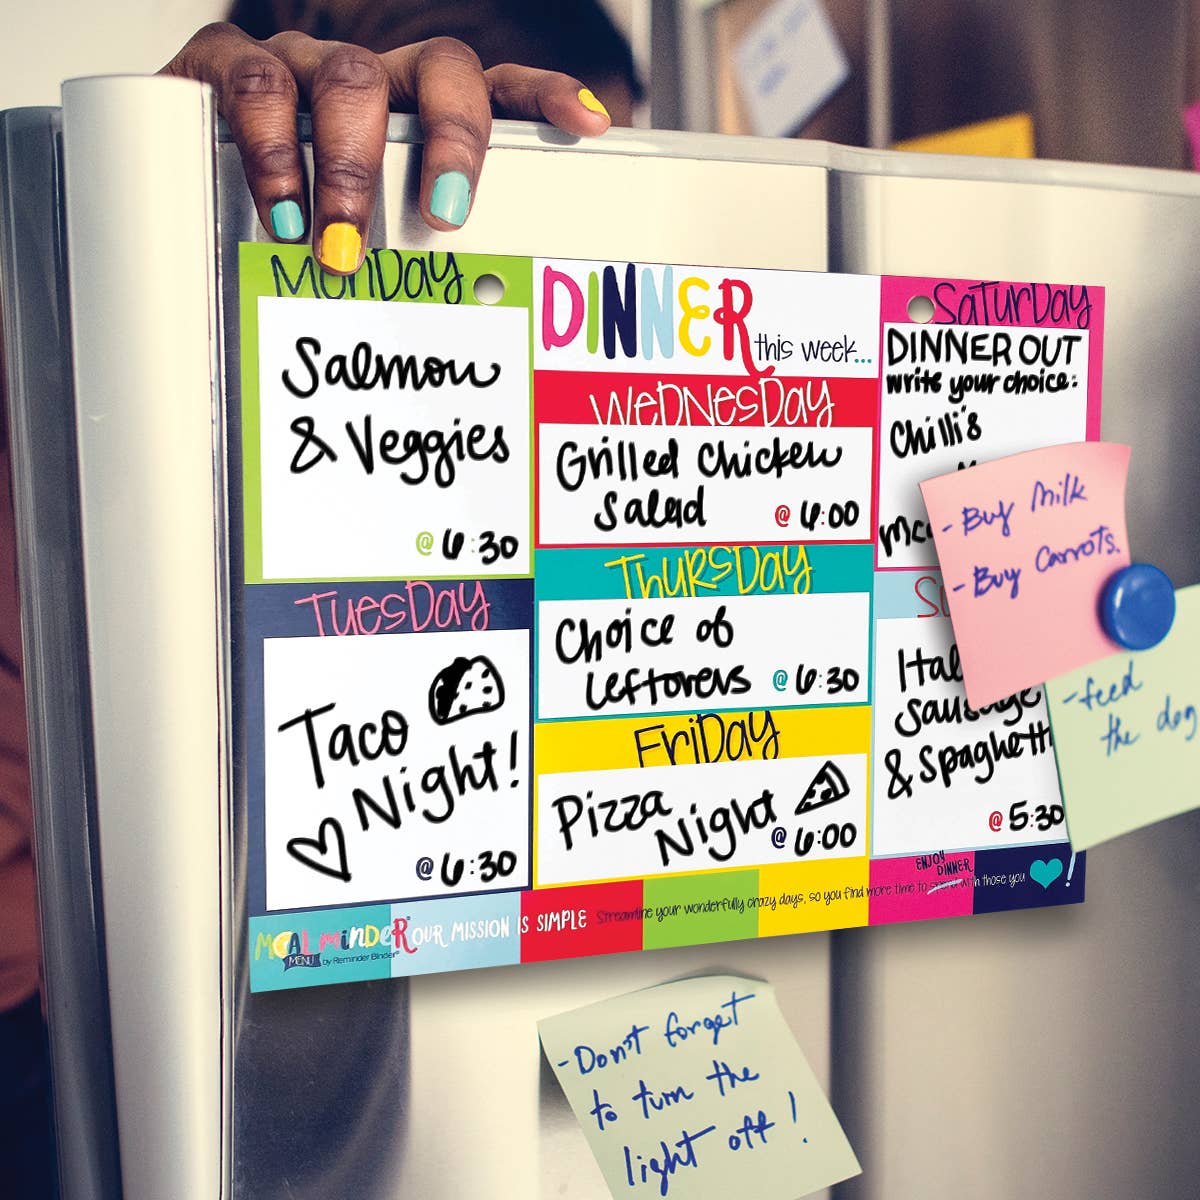 MonDay
Salmon
& Veggies
@ 6:30
TuesDay
Taco
Night!
@ 6:30
DINNER
this week...
WeDNesDay
Grilled Chicken
Salad
@ 6:00
THURSDay
Choice of
Leftovers @ 6:30
FriDay
Pizza
Night
@ 6:00
SaTurDay
DINNER OUT
write your choice:
Chilli's
- Buy Milk
- Buy Carrots.
sausage
& Spaghetti
@ 5:30
- feed
the dog
MeaL minDeR OUR MISSION IS SIMPLE Streamline your wonderfully crazy days, so you find more time to spend with those you !
ENJOY
DINNER
MENU by Reminder Binder®
- Don't forget
to turn the
light off!